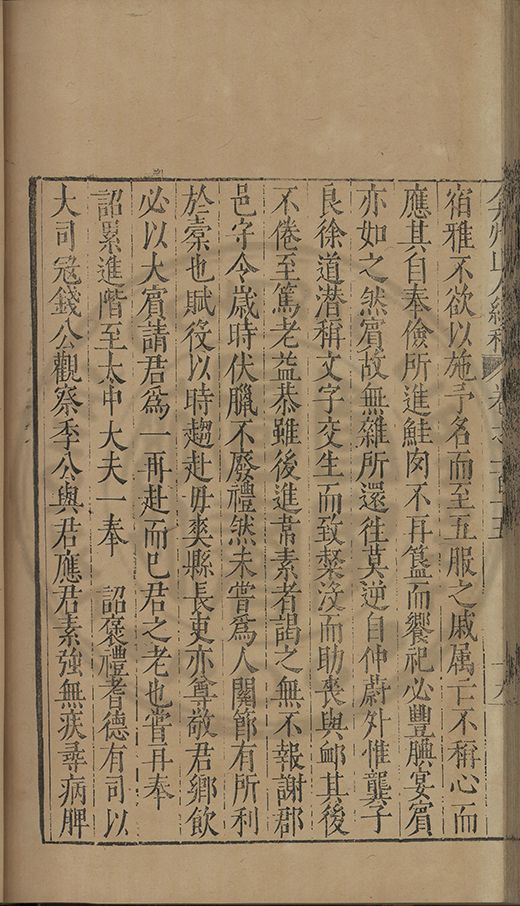 弇州山人續稿 卷之一百十五 十九
宿雅不欲以施予名而至五服之戚属亡不稱心而
應其自奉儉所進鮭肉不再簋而饗祀必豐腆宴賓
亦如之然賓故無雜所還往莫逆自仲蔚外惟龔子
良徐道潜稱文字交生而致槩没而助喪與䘏其後
不倦至篤老益恭雖後進常素者謁之無不報謝郡
邑守令歲時伏臘不廢禮然未嘗為人關節有所利
於橐也賦役以時趨赴毋爽縣長吏亦尊敬君鄉飲
必以大賓請君為一再赴而已君之老也嘗再奉
詔累進階至太中大夫一奉 詔褒禮耆德有司以
大司冦錢公觀察季公與君應君素強無疾尋病脾